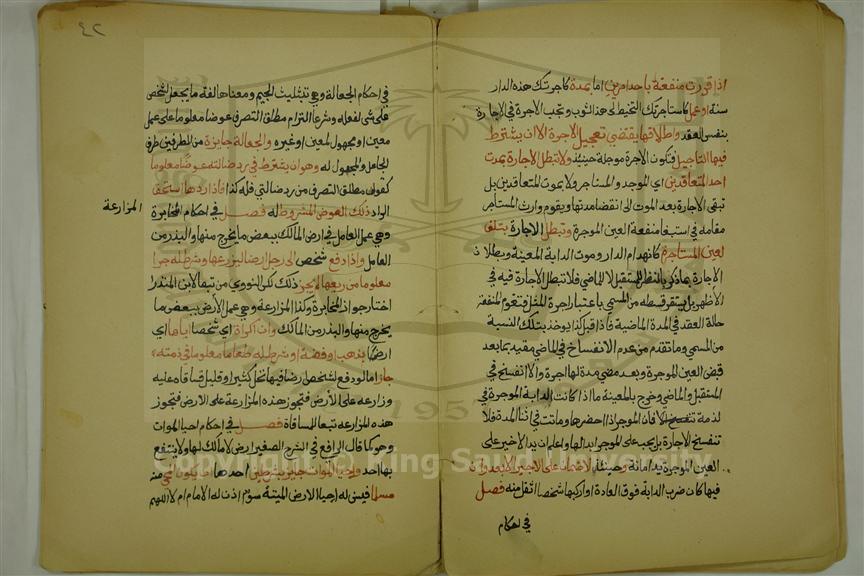 اذا قدرت منفعة باحد امرين اما بمدة كاجرتك هذه الدار
سنة او عمل كاستاجرتك لتخيط لي هذا الثوب وتجب الاجرة في الاجارة
بنفس العقد واطلاقها يقتضي تعجيل الاجرة الا ان يشترط
فيها التاجيل فتكون الاجرة موجلة حينئذ ولا تبطل الاجارة بموت
احد المتعاقدين اي الموجر والمستاجر ولا بموت المتعاقدين بل
تبقى الاجارة بعد الموت الى انقضا مدتها ويقوم وارث المستاجر
مقامه في استيفا منفعة العين الموجرة وتبطل الاجارة بتلف
لعين المستاجرة كانهدام الدار وموت الدابة المعينة وبطلان
الاجارة بما ذكر بالنظر للمستقبل لا الماضي فلا تبطل الاجارة فيه في
الاظهر بل يستقر قسطه من المسمى باعتبار اجرة المثل فتقوم المنفعة
حالة العقد في المدة الماضية فاذا قيل كذا يوخذ بتلك النسبة
من المسمى وما تقدم من عدم الانفساخ في الماضي مقيد بما بعد
قبض العين الموجرة وبعد مضي مدة لها اجرة والا انفسخ في
المستقبل والماضي وخرج بالمعينة ما اذا كانت الدابة الموجرة في
لذمة فان الموجر اذا احضرها وماتت في اثنا المدة فلا
تنفسخ الاجارة بل يجب على الموجر ابدالها واعلم ان يد الاجير على
العين الموجرة يد امانة وحينئذ لا ضمان على الاجير الا بعدوان
فيها كان ضرب الدابة فوق العادة او اركبها شخصا اثقل منه فصل
في احكام
٤٢
في احكام الجعالة وهي بتثليث الجيم ومعناها لغة ما يجعل لشخص
على شي لفعله وشرعا التزام مطلق التصرف عوضا معلوما على عمل
معين او مجهول لمعين او غيره والجعالة جايزة من الطرفين طرف
الجاعل والمجعول له وهو ان يشترط في رد ضالته عوضا معلوما
كقول مطلق التصرف من رد ضالتي فله كذا فاذا ردها استحق
الراد ذلك العوض المشروط له فصل في احكام المخابرة
المزارعة
وهي عمل العامل في ارض المالك ببعض ما يخرج منها والبذر من
العامل واذا دفع شخص الى رجل ارضا ليزرعها وشرط له جزا
معلوما من ريعها لم يجز ذلك لكن النووي من تبعا لابن المنذر
اختار جواز المخابرة وكذا المزارعة وهي عمل الارض ببعض ما
يخرج منها والبذر من المالك وان اكراه اي شخصا اياها اي
ارضا بذهب او فضة او شرط له طعاما معلوما في ذمته
جاز اما لو دفع لشخص ارضا فيها نخل كثير او قليل فساقاه عليه
وزارعه على الارض فتجوز هذه المزارعة على الارض فتجوز
هذه المزارعه تبعا للمساقاة فصل في احكام احيا الموات
وهو كما قال الرافعي في الشرح الصغير ارض لا مالك لها ولا ينتفع
بها احد واحيا الموات جايز بشرطين احدهما ان يكون المحيي
مسلما فيسن له احيا الارض الميتة سوا اذن له الامام ام لا اللهم
Copyright © King Saud University
1957